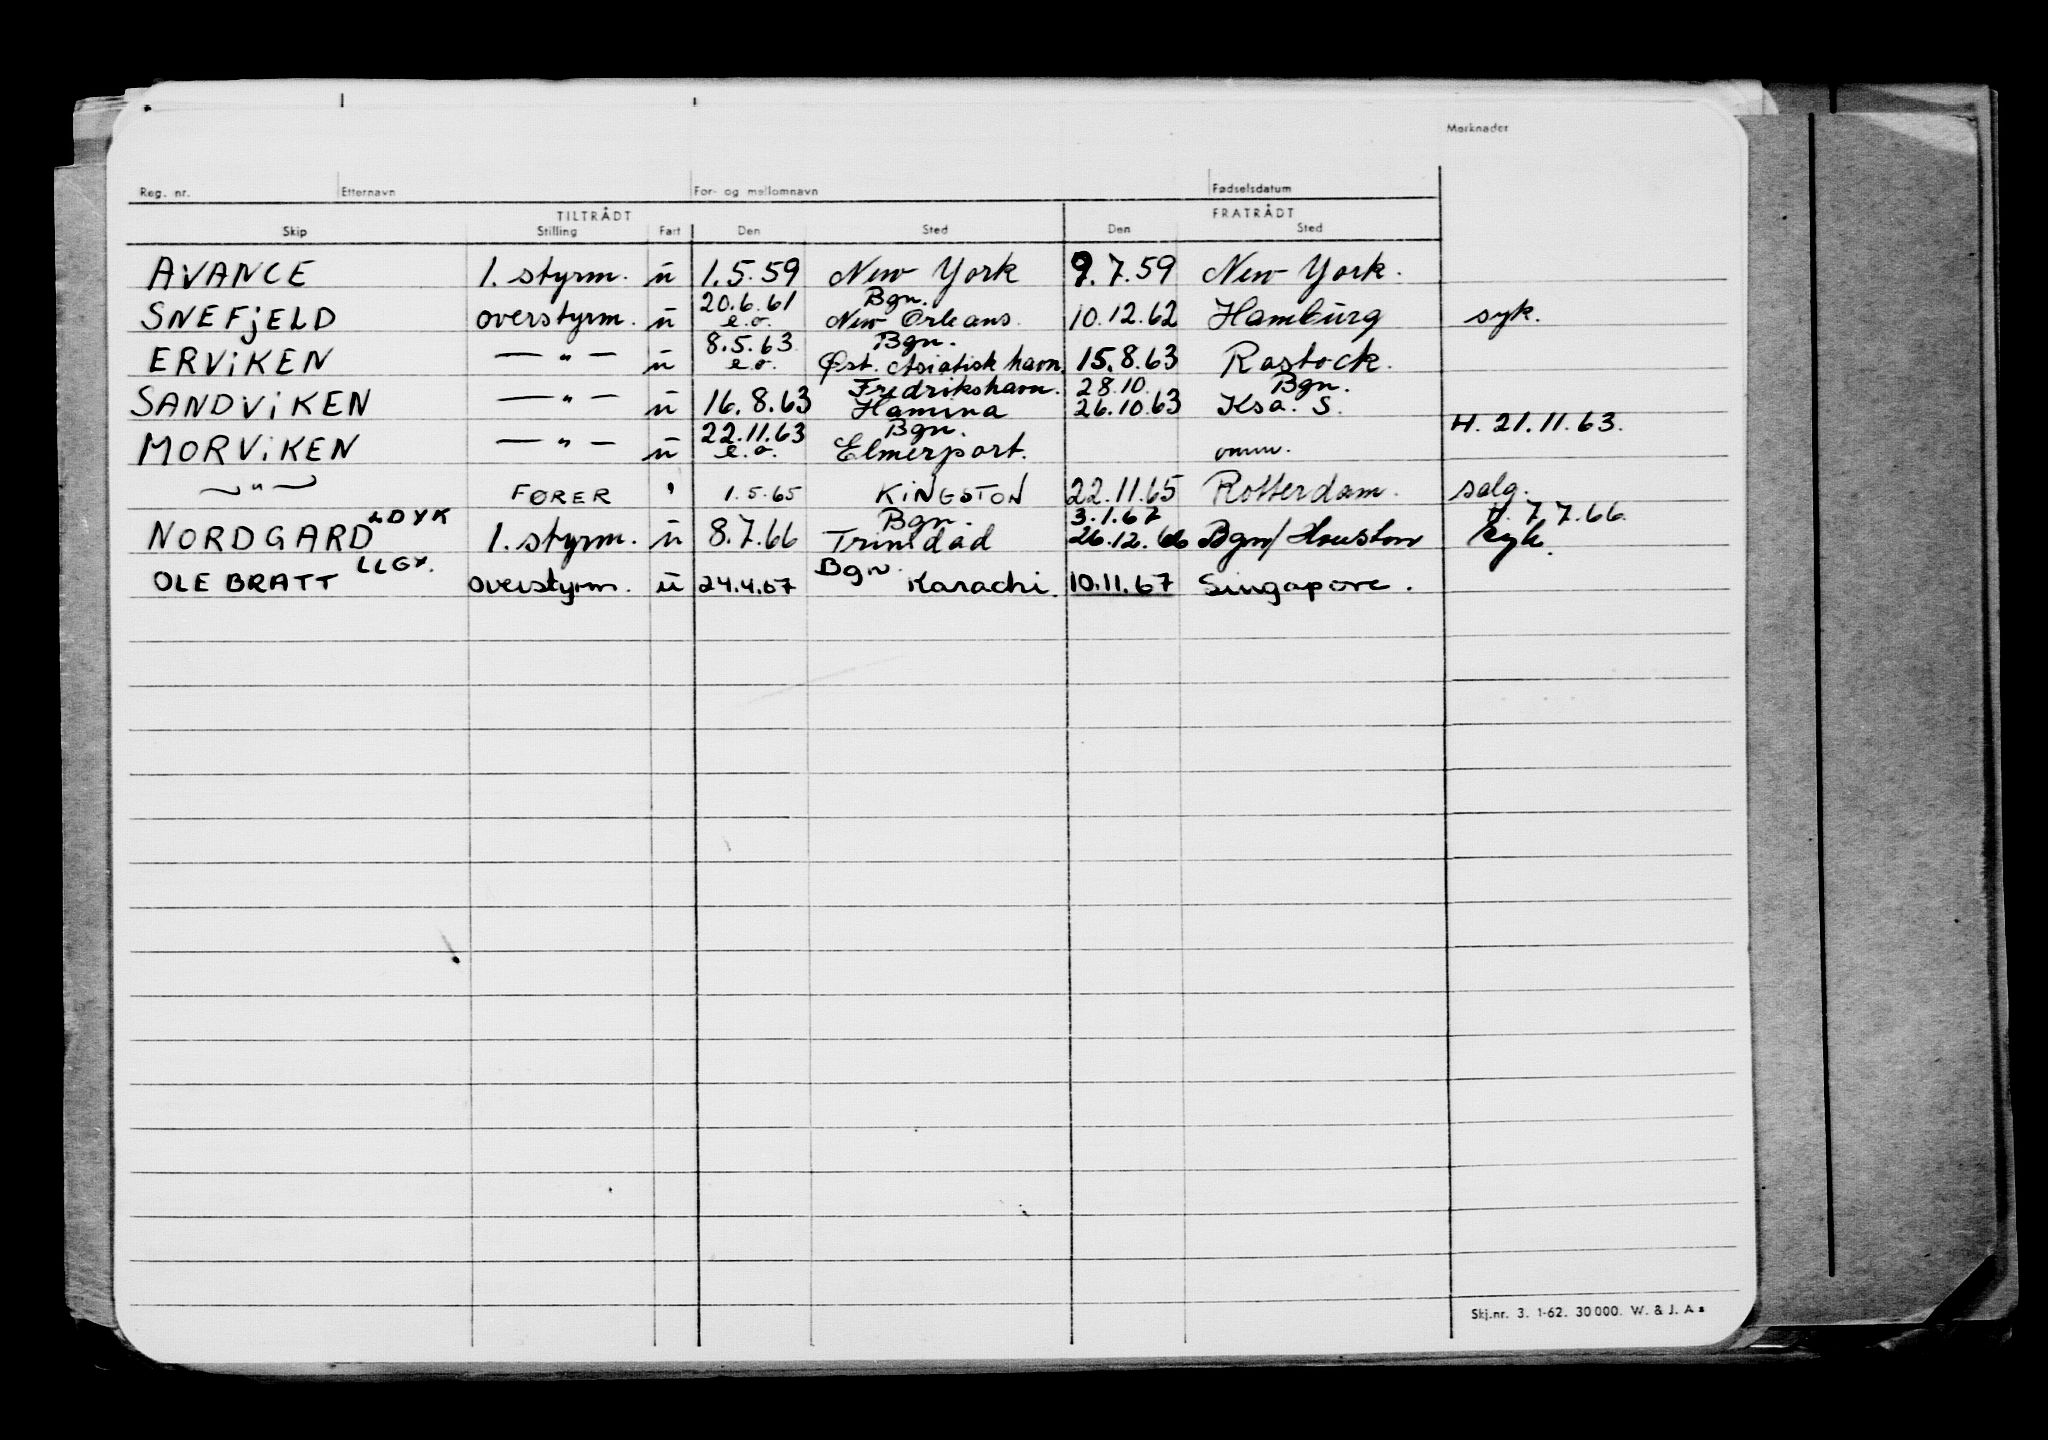 Merknader
Reg. nr. Etternavn For- og mellomnavn Fødselsdatum
TILTRÅDT FRATRÅDT
Skip Stilling Fart Den Sted Den Sted
AVANCE 1. styrm. u 1.5.59 New York 9.7.59 New York.
20.6.61 Bgn.
SNEFjELD overstyrm. u e.o. New Orleans 10.12.62 Hamburg syk.
8.5.63 Bgn.
ERViKEN — " — u e.o. Øst. Asiatisk havn. 15.8.63 Rostock.
Fredrikshavn. 28.10. Bgn.
SANDViKEN — " — u 16.8.63 Hamina 26.10.63 Ksa. S.
22.11.63 Bgn. H. 21.11.63.
MORViKEN — " — u e.o. Elmerport. omm.
— " — FØRER " 1.5.65 KiNGSTON 22.11.65 Rotterdam. salg.
LDYK Bgn. 3.1.67 H. 7.7.66.
NORDGARD 1. styrm. u 8.7.66 Trinidad 26.12.66 Bgn/Houston syk.
LLGY. Bgn.
OLE BRATT overstyrm. u 24.4.67 Karachi. 10.11.67 Singapore.
Skj.nr. 3. 1-62. 30 000. W. & J. A s